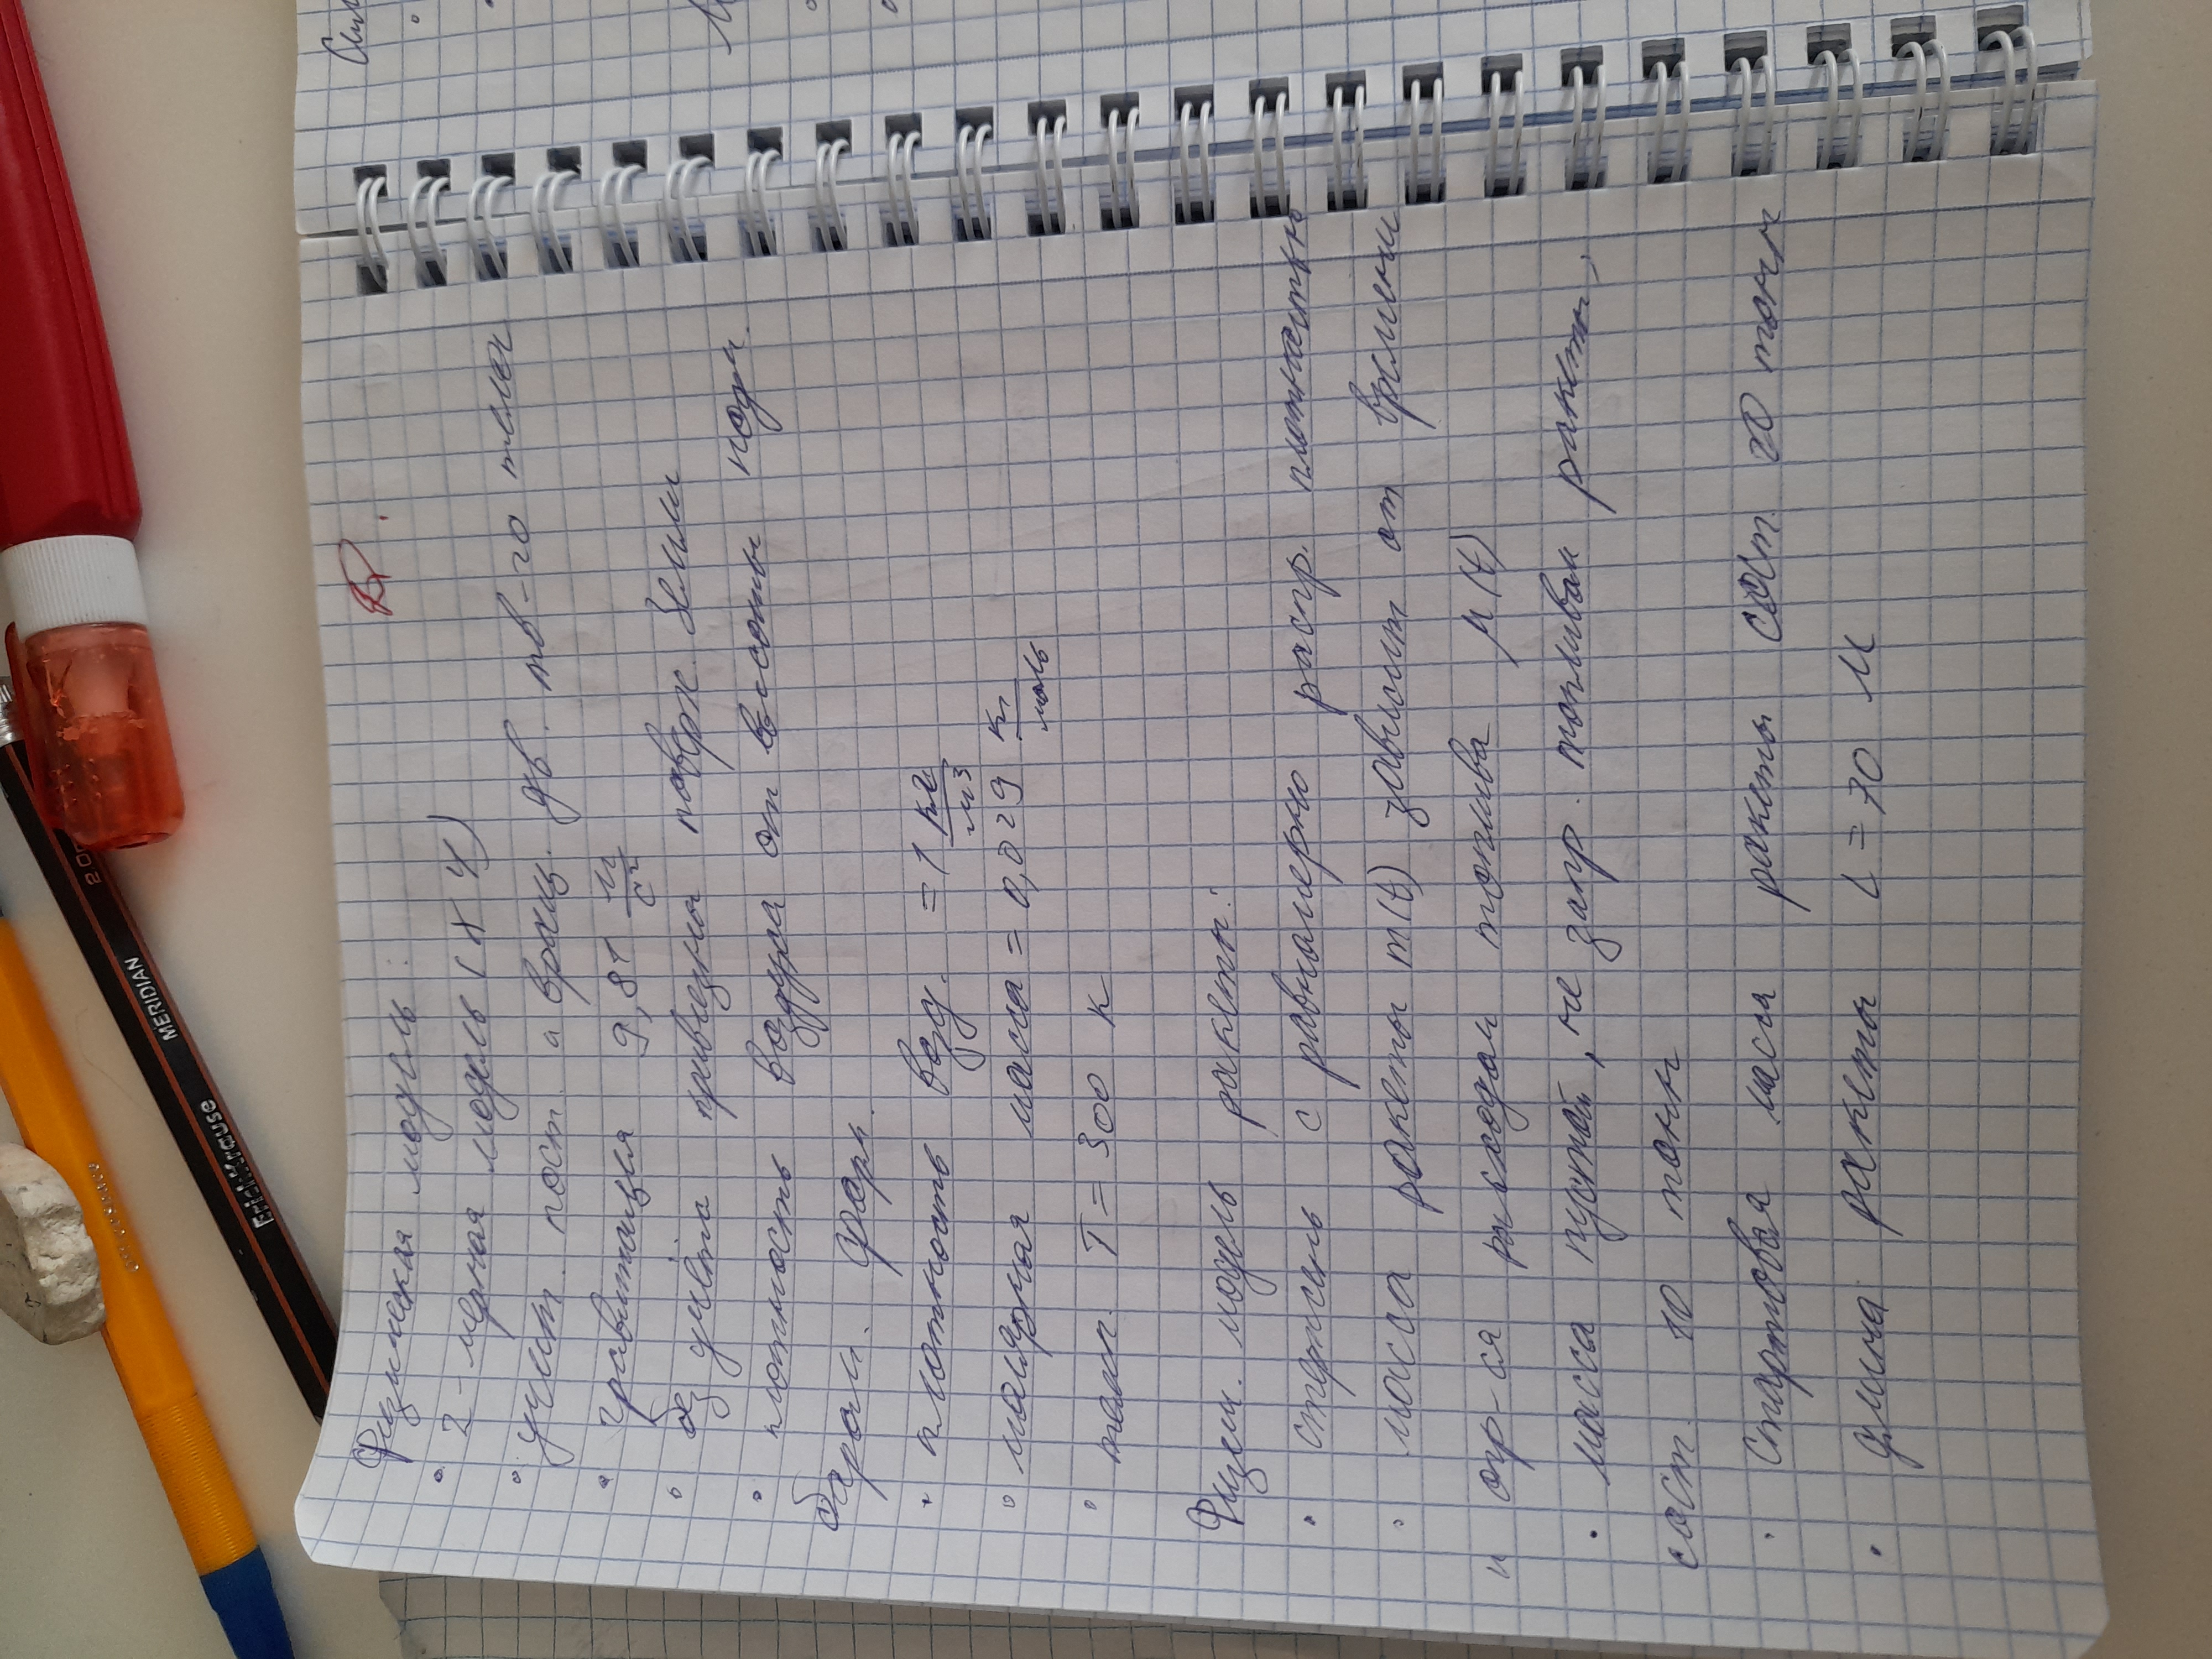 officespace
MERIDIAN 2.0
ErichKrause
Физическая модель:
2-мерная модель (X Y)
учит. пост. и вращ. дв. тв-го тела
гравитация 9,81 м/с²
без учёта кривизны поверх. Земли
плотность воздуха от высоты подч.
баром. форм.
плотность возд. = 1 кг/м3
молярная масса = 0,029 кг/моль
темп. T = 300 K
Физич. модель ракеты:
стержень с равномерно распр. плотностью
масса ракеты m(t) зависит от времени
и огр-ся расходом топлива μ(t)
масса пустой, не запр. топливом ракеты,
сост. 10 тонн
стартовая масса ракеты сост. 20 тонн
длина ракеты L = 70 м